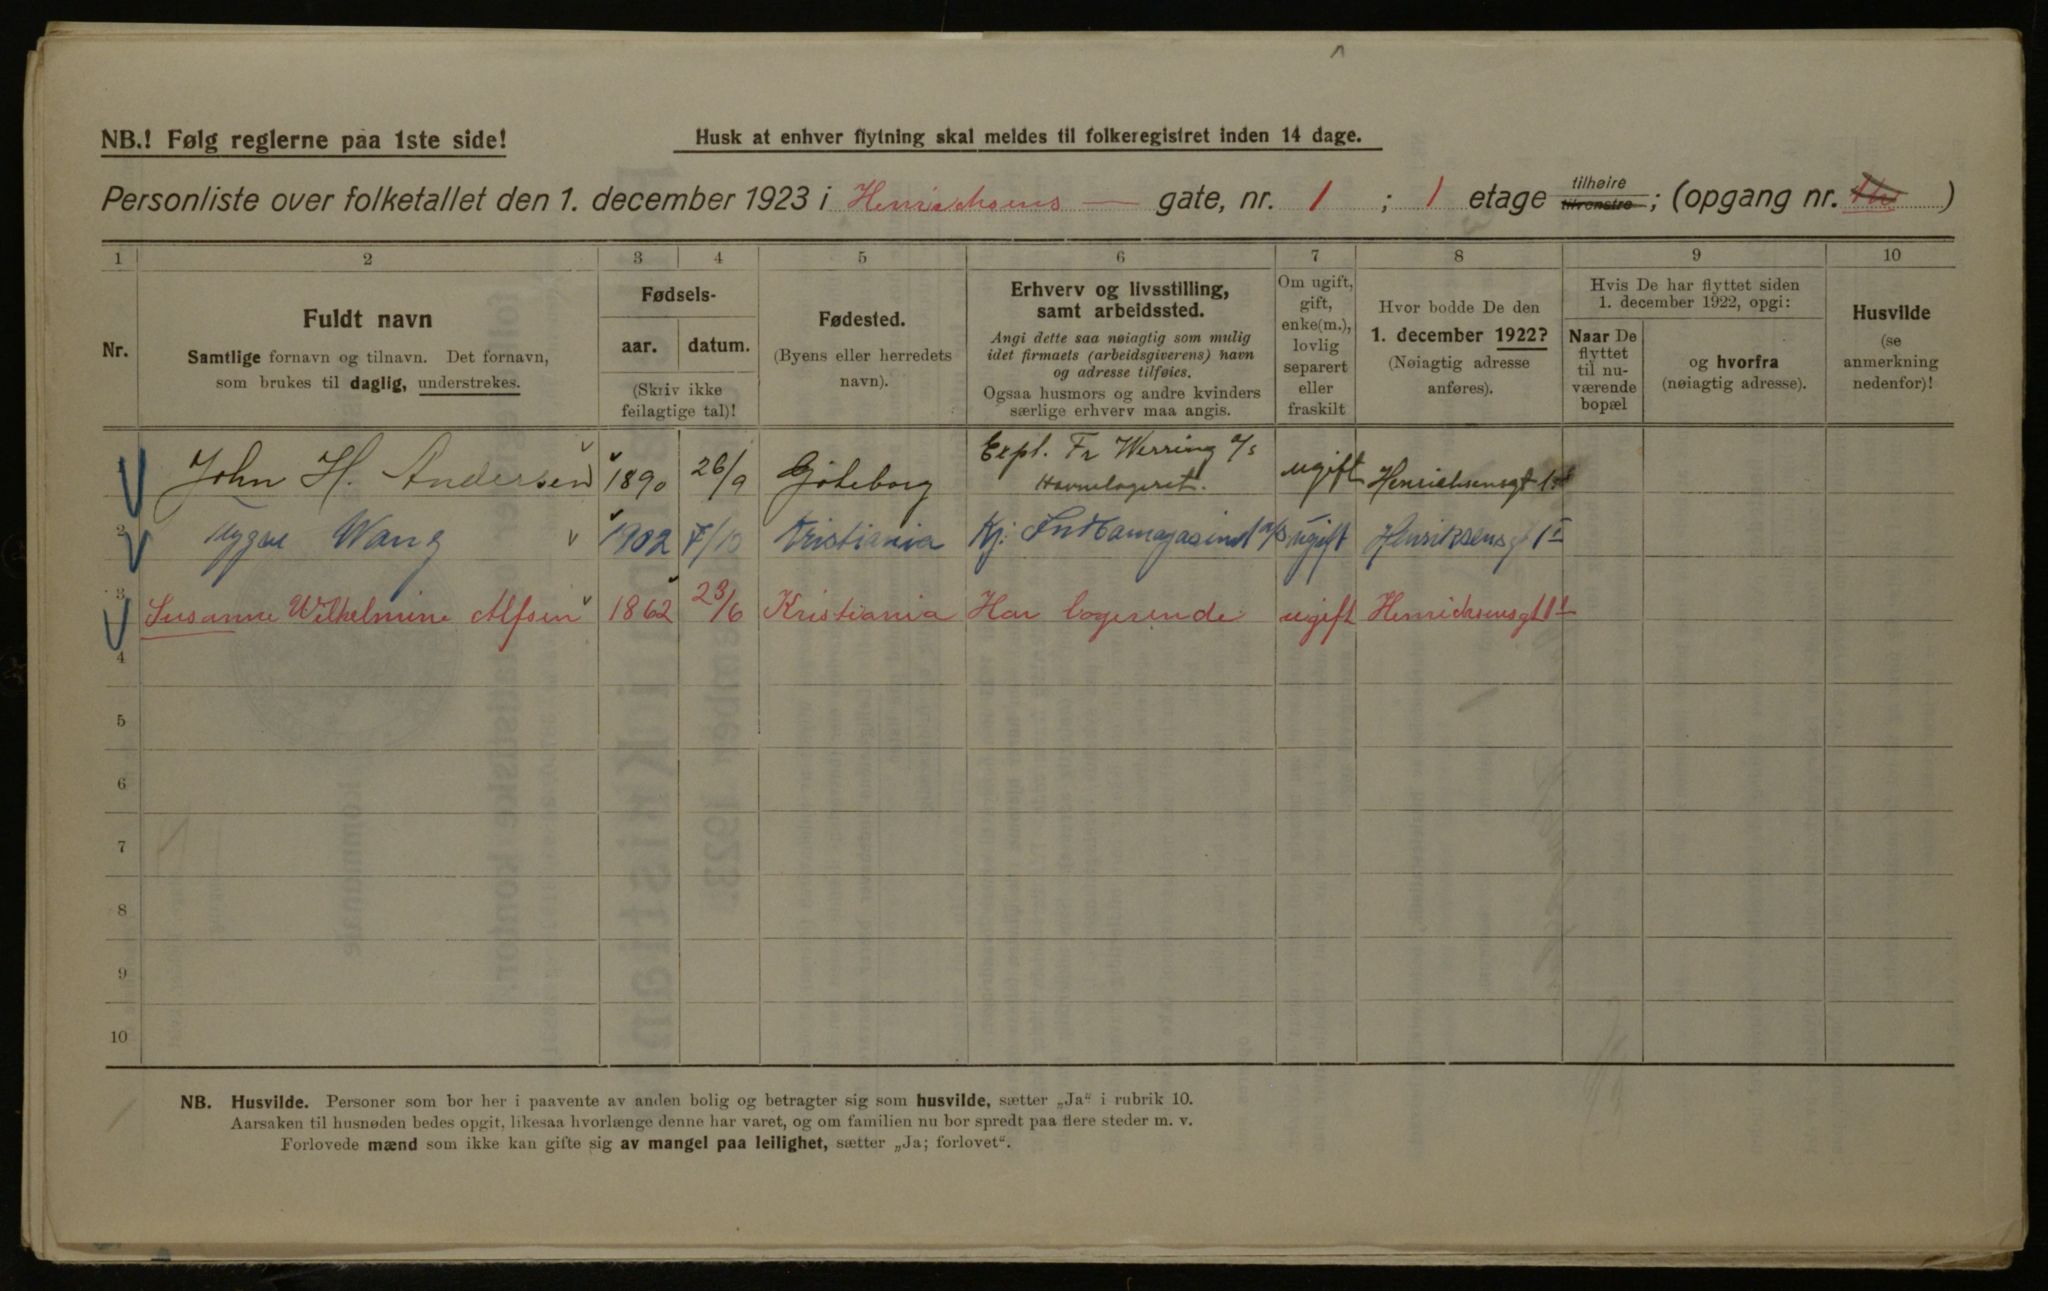 NB.! Følg reglerne paa 1ste side!
Husk at enhver flytning skal meldes til folkeregistret inden 14 dage.
Personliste over folketallet den 1. december 1923 i Henrichsens gate, nr. 1 ; 1 etage tilhøire tilvenstre ; (opgang nr. )
1 2 3 4 5 6 7 8 9 10
Nr.
Fuldt navn
Samtlige fornavn og tilnavn. Det fornavn,
som brukes til daglig, understrekes.
Fødsels-
aar. datum.
(Skriv ikke
feilagtige tal)!
Fødested.
(Byens eller herredets
navn).
Erhverv og livsstilling,
samt arbeidssted.
Angi dette saa nøiagtig som mulig
idet firmaets (arbeidsgiverens) navn
og adresse tilføies.
Ogsaa husmors og andre kvinders
særlige erhverv maa angis.
Om ugift,
gift,
enke(m.),
lovlig
separert
eller
fraskilt
Hvor bodde De den
1. december 1922?
(Nøiagtig adresse
anføres).
Hvis De har flyttet siden
1. december 1922, opgi:
Naar De
flyttet
til nu-
værende
bopæl
og hvorfra
(nøiagtig adresse).
Husvilde
(se
anmerkning
nedenfor)!
John H. Andersen 1890 26/9 Göteborg Expl. Fr Werring A/s Havnelageret. ugift Henrichsensgt 1
2 Trygve Wang 1902 Kristiania ugift Henriksensgt 1 I
3 Susanne Wilhelmine Alfsen 1862 23/6 Kristiania Har logerende ugift Henrichsensgt 1
4
5
6
7
8
9
10
NB. Husvilde. Personer som bor her i paavente av anden bolig og betragter sig som husvilde, sætter „Ja“ i rubrik 10.
Aarsaken til husnøden bedes opgit, likesaa hvorlænge denne har varet, og om familien nu bor spredt paa flere steder m. v.
Forlovede mænd som ikke kan gifte sig av mangel paa leilighet, sætter „Ja; forlovet“.